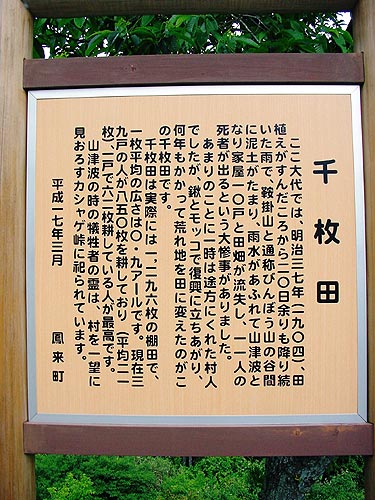 千枚田
ここ大代では、明治三七年（一九〇四）、田
植えがすんだころから二〇日余りも降り続
いた雨で、鞍掛山と通称びんぼう山の谷間
に泥土がたまり、雨水があふれて山津波と
なり家屋一〇戸と田畑が流失し、一一人の
死者が出るという大惨事がありました。
あまりのことに一時は途方にくれた村人
でしたが、鍬とモッコで復興に立ちあがり、
何年もかかって荒れ地を田に変えたのがこ
の千枚田です。
千枚田は実際には一，二九六枚の棚田で、
一枚平均の広さは〇・九アールです。現在三
九戸の人が八五〇枚を耕しており（平均二一
枚）、一戸で六一枚耕している人が最高です。
山津波の時の犠牲者の霊は、村を一望に
見おろすカシャゲ峠に祀られています。
平成一七年三月　鳳来町